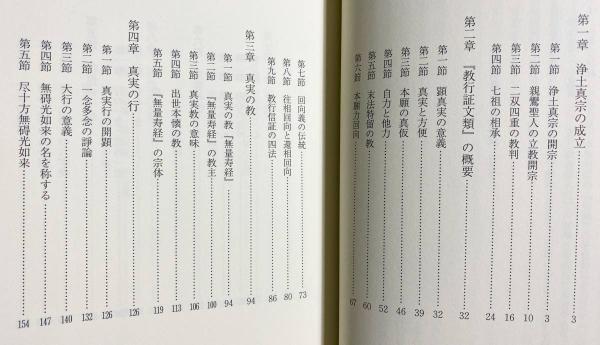 第一章　浄土真宗の成立 3
第一節　浄土真宗の開宗 3
第二節　親鸞聖人の立教開宗 10
第三節　二双四重の教判 16
第四節　七祖の相承 24
第二章　『教行証文類』の概要 32
第一節　顕真実の意義 32
第二節　真実と方便 39
第三節　本願の真仮 46
第四節　自力と他力 52
第五節　末法特留の教 60
第六節　本願力回向 67
第七節　回向義の伝統 73
第八節　往相回向と還相回向 80
第九節　教行信証の四法 86
第三章　真実の教 94
第一節　真実の教『無量寿経』 94
第二節　『無量寿経』の教主 100
第三節　真実教の意味 106
第四節　出世本懐の教 113
第五節　『無量寿経』の宗体 119
第四章　真実の行 126
第一節　真実行の開顕 126
第二節　一念多念の諍論 132
第三節　大行の意義 140
第四節　無碍光如来の名を称する 147
第五節　尽十方無碍光如来 154